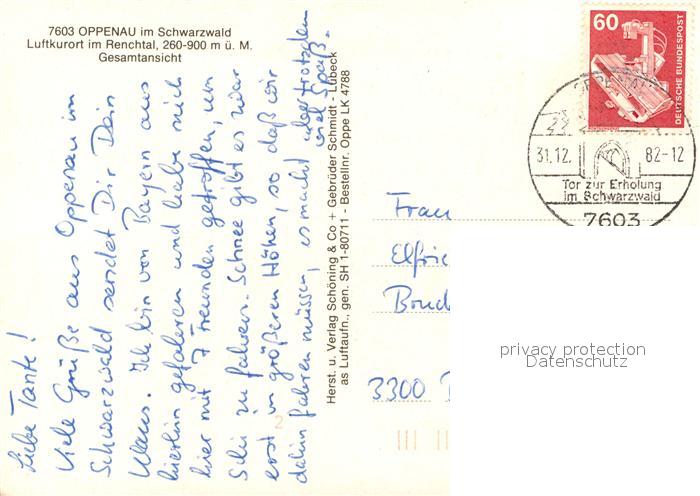 7603 OPPENAU im Schwarzwald
Luftkurort im Renchtal, 260-900 m ü. M.
Gesamtansicht
Liebe Tante!
Viele Grüße aus Oppenau im
Schwarzwald sendet Dir Dein
Klaus. Ich bin von Bayern aus
hierhin gefahren und habe mich
hier mit 7 Freunden getroffen, um
Ski zu fahren. Schnee gibt es zwar
erst in größeren Höhen, so daß wir
dahin fahren müssen, es macht aber trotzdem
viel Spaß.
Herst. u. Verlag Schöning & Co + Gebrüder Schmidt - Lübeck
as Luftaufn., gen. SH 1-80711 - Bestellnr. Oppe LK 4788
60
DEUTSCHE BUNDESPOST
OPPENAU
31.12. 82-12
Tor zur Erholung
im Schwarzwald
7603
Frau
Elfrie
3300
privacy protection
Datenschutz